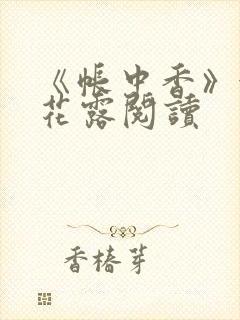 《帳中香》
花露閱讀
香椿芽